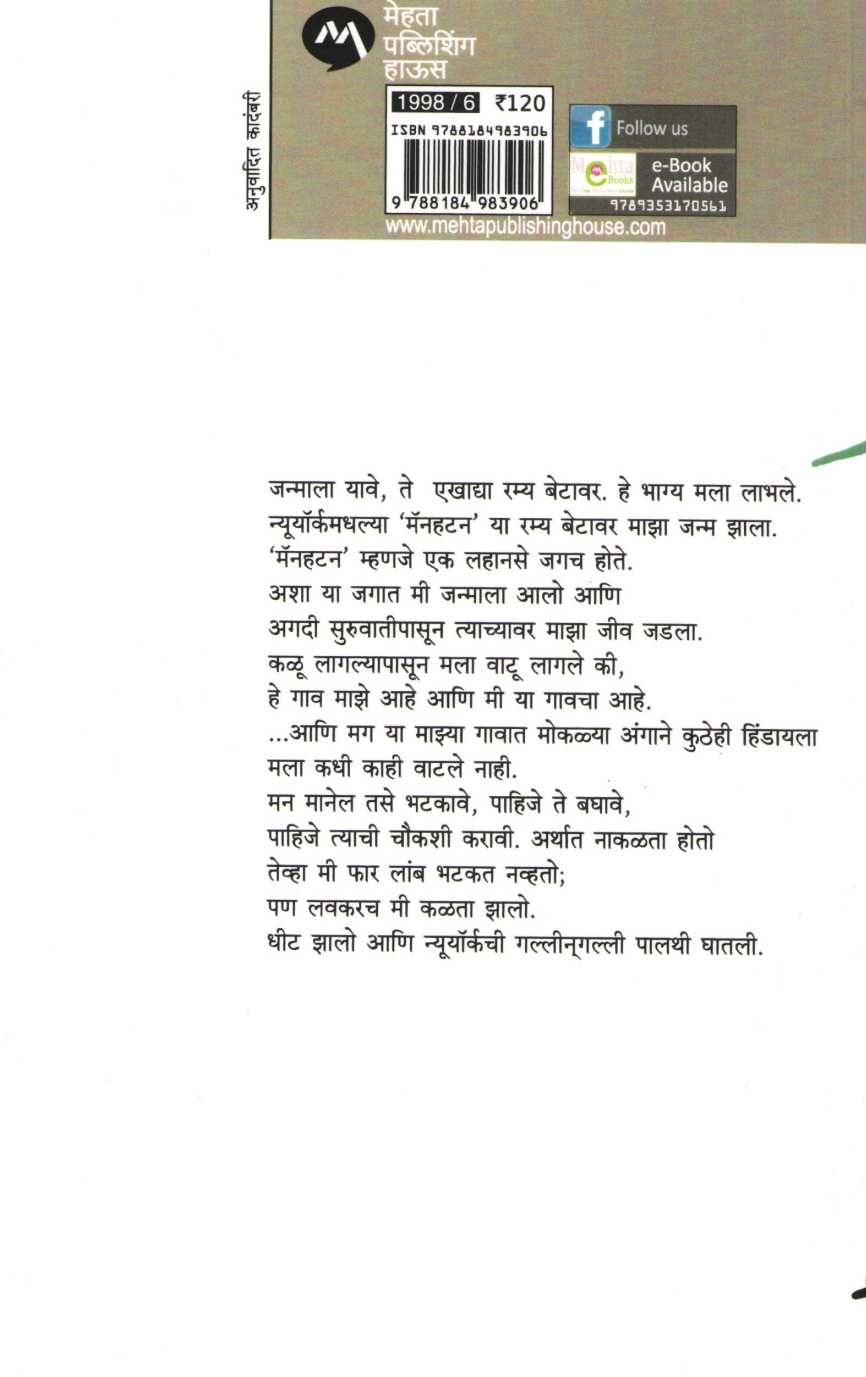 मेहता
पब्लिशिंग
हाऊस
अनुवादित कादंबरी
1998 / 6 ₹120
ISBN 9788184983906
9 788184 983906
Follow us
Mehta
Books
e-Book
Available
9789353170561
www.mehtapublishinghouse.com
जन्माला यावे, ते एखाद्या रम्य बेटावर. हे भाग्य मला लाभले.
न्यूयॉर्कमधल्या ‘मॅनहटन’ या रम्य बेटावर माझा जन्म झाला.
‘मॅनहटन’ म्हणजे एक लहानसे जगच होते.
अशा या जगात मी जन्माला आलो आणि
अगदी सुरुवातीपासून त्याच्यावर माझा जीव जडला.
कळू लागल्यापासून मला वाटू लागले की,
हे गाव माझे आहे आणि मी या गावचा आहे.
...आणि मग या माझ्या गावात मोकळ्या अंगाने कुठेही हिंडायला
मला कधी काही वाटले नाही.
मन मानेल तसे भटकावे, पाहिजे ते बघावे,
पाहिजे त्याची चौकशी करावी. अर्थात नाकळता होतो
तेव्हा मी फार लांब भटकत नव्हतो;
पण लवकरच मी कळता झालो.
धीट झालो आणि न्यूयॉर्कची गल्लीन्‌गल्ली पालथी घातली.